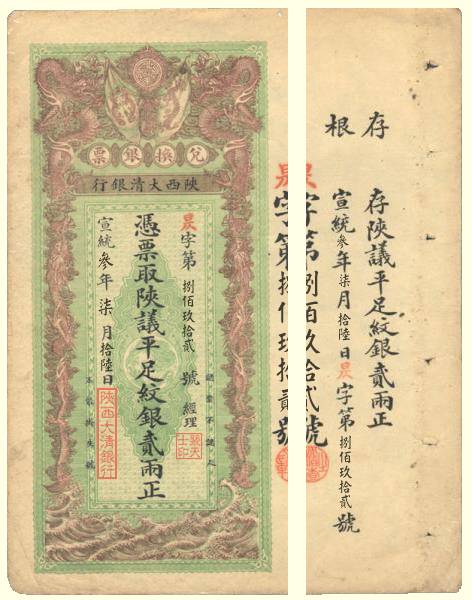 存根
存陝議平足紋銀貳兩正
宣統叁年柒月拾陸日 字第捌佰玖拾貳號
字第捌佰玖拾貳號
兌換銀票
陝西大清銀行
字第捌佰玖拾貳號 經理
憑票取陝議平足紋銀貳兩正
宣統叁年柒月拾陸日
陝西大清銀行